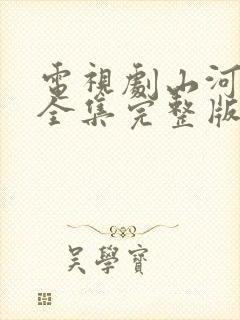 電視劇山河
全集完整版
吴學寶